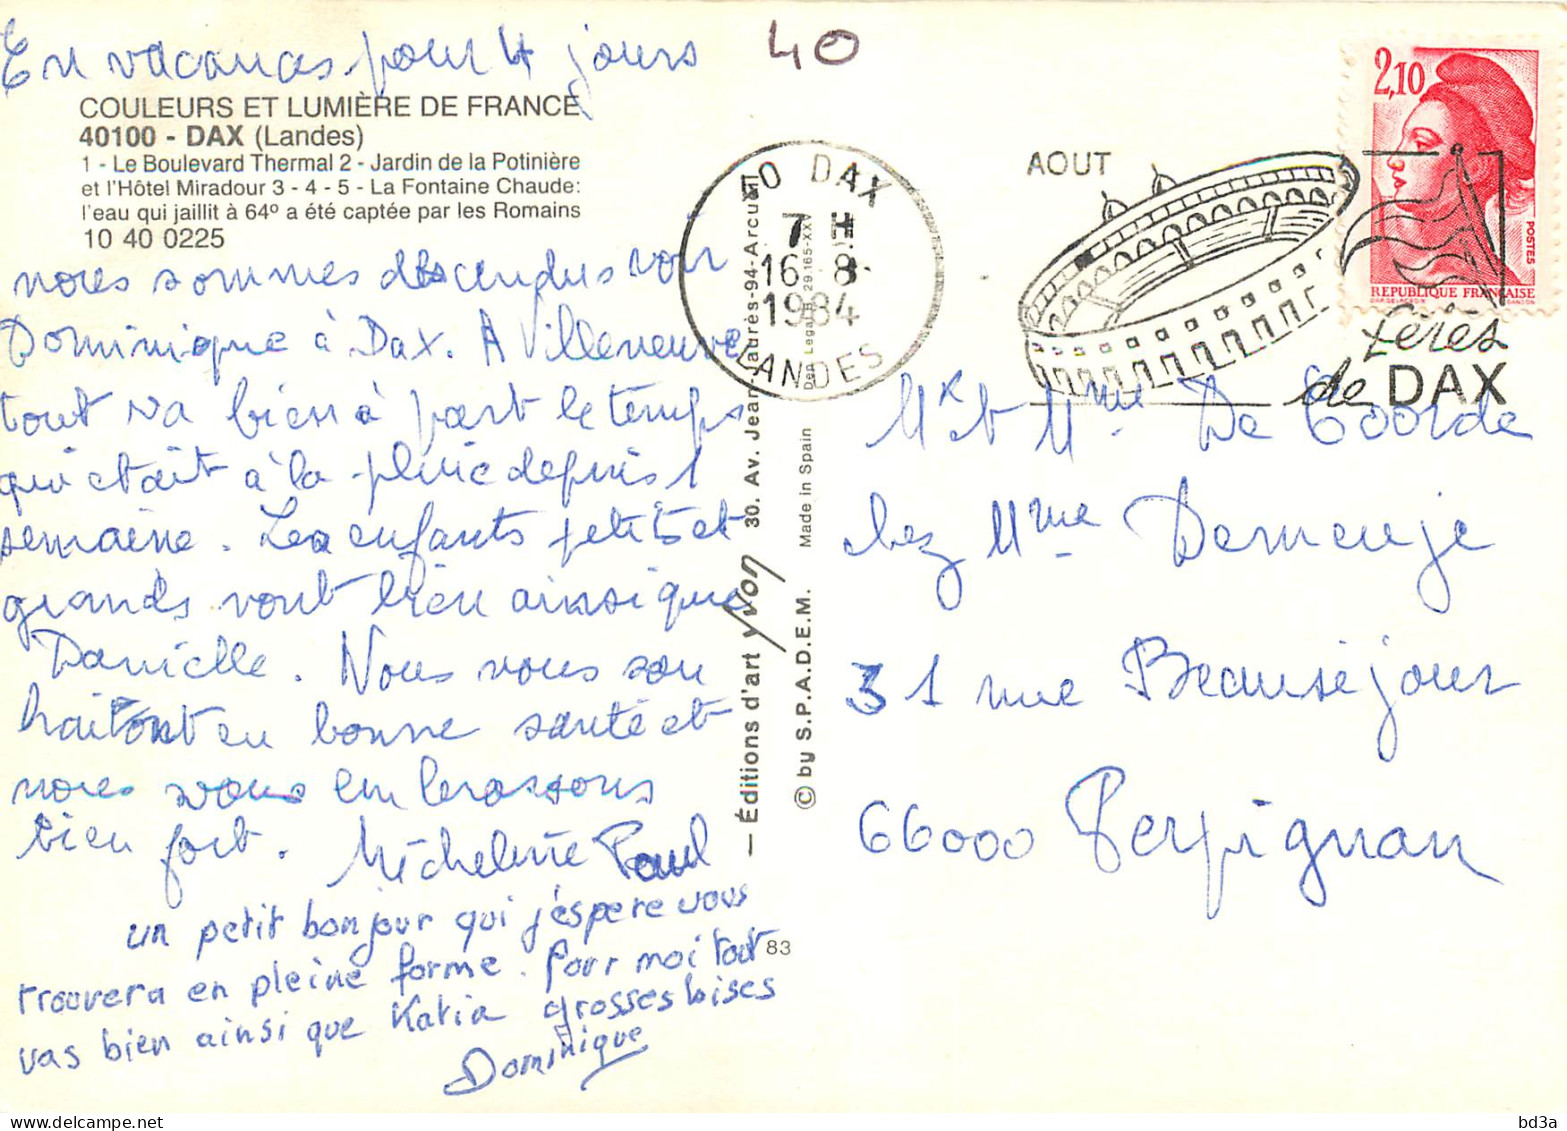 En vacances pour 4 jours
COULEURS ET LUMIÈRE DE FRANCE
40100 - DAX (Landes)
1 - Le Boulevard Thermal 2 - Jardin de la Potinière
et l'Hôtel Miradour 3 - 4 - 5 - La Fontaine Chaude:
l'eau qui jaillit à 64º a été captée par les Romains
10 40 0225
nous sommes descendus voir
Dominique à Dax. A Villeneuve
tout va bien à part le temps
qui était à la pluie depuis 1
semaine. Les enfants petits et
grands vont bien ainsi que
Danielle. Nous vous sou
haitons en bonne santé et
nous vous embrassons
bien fort. Micheline Paul
un petit bonjour qui j'éspere vous
trouvera en pleine forme. Pour moi tout
vas bien ainsi que Katia grosses bises
Dominique
— Éditions d'art yvon 30. Av. Jean Jaurès-94-Arcueil
© by S.P.A.D.E.M. Made in Spain Dep. Legal B. 29.165-XX
83
40
40 DAX
7 H
16 - 8
1984
LANDES
AOUT
fêtes
de DAX
2,10
POSTES
REPUBLIQUE FRANÇAISE
Mr et Mme De Coorde
chez Mme Demeuje
31 rue Beauséjour
66000 Perpignan
bd3a